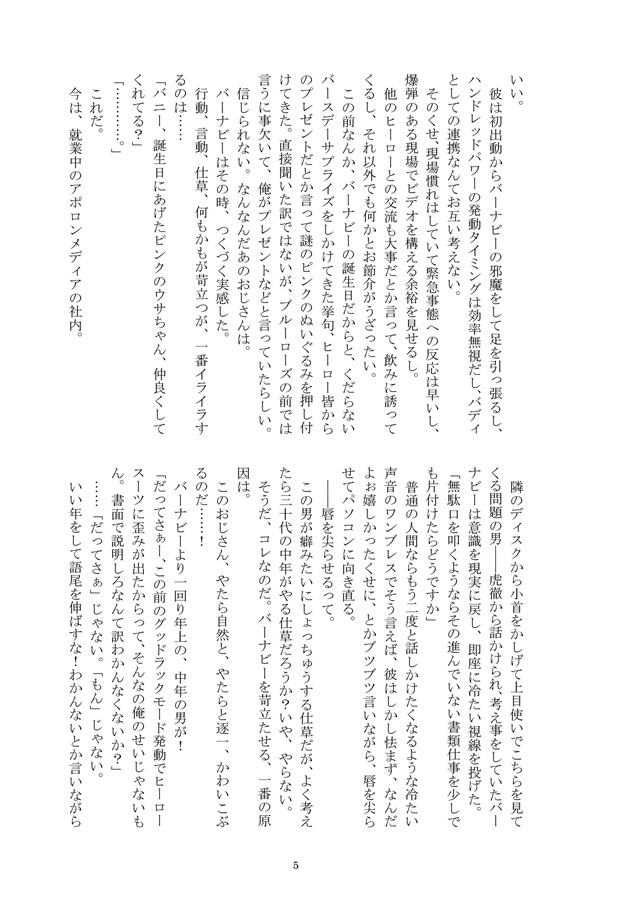 いい。
　彼は初出動からバーナビーの邪魔をして足を引っ張るし、
ハンドレッドパワーの発動タイミングは効率無視だし、バディ
としての連携なんてお互い考えない。
　そのくせ、現場慣れはしていて緊急事態への反応は早いし、
爆弾のある現場でビデオを構える余裕を見せるし。
　他のヒーローとの交流も大事だとか言って、飲みに誘って
くるし、それ以外でも何かとお節介がうざったい。
　この前なんか、バーナビーの誕生日だからと、くだらない
バースデーサプライズをしかけてきた挙句、ヒーロー皆から
のプレゼントだとか言って謎のピンクのぬいぐるみを押し付
けてきた。直接聞いた訳ではないが、ブルーローズの前では
言うに事欠いて、俺がプレゼントなどと言っていたらしい。
　信じられない。なんなんだあのおじさんは。
　バーナビーはその時、つくづく実感した。
　行動、言動、仕草、何もかもが苛立つが、一番イライラす
るのは……
「バニー、誕生日にあげたピンクのウサちゃん、仲良くして
くれてる？」
「…………。」
　これだ。
　今は、就業中のアポロンメディアの社内。
　隣のディスクから小首をかしげて上目使いでこちらを見て
くる問題の男――虎徹から話かけられ、考え事をしていたバー
ナビーは意識を現実に戻し、即座に冷たい視線を投げた。
「無駄口を叩くようならその進んでいない書類仕事を少しで
も片付けたらどうですか」
　普通の人間ならもう二度と話しかけたくなるような冷たい
声音のワンブレスでそう言えば、彼はしかし怯まず、なんだ
よぉ嬉しかったくせに、とかブツブツ言いながら、唇を尖ら
せてパソコンに向き直る。
　――唇を尖らせるって。
　この男が癖みたいにしょっちゅうする仕草だが、よく考え
たら三十代の中年がやる仕草だろうか？いや、やらない。
　そうだ、コレなのだ。バーナビーを苛立たせる、一番の原
因は。
　このおじさん、やたら自然と、やたらと逐一、かわいこぶ
るのだ……！
　バーナビーより一回り年上の、中年の男が！
「だってさぁー、この前のグッドラックモード発動でヒーロー
スーツに歪みが出たからって、そんなの俺のせいじゃないも
ん。書面で説明しろなんて訳わかんなくないか？」
　……「だってさぁ」じゃない。「もん」じゃない。
　いい年をして語尾を伸ばすな！わかんないとか言いながら
5